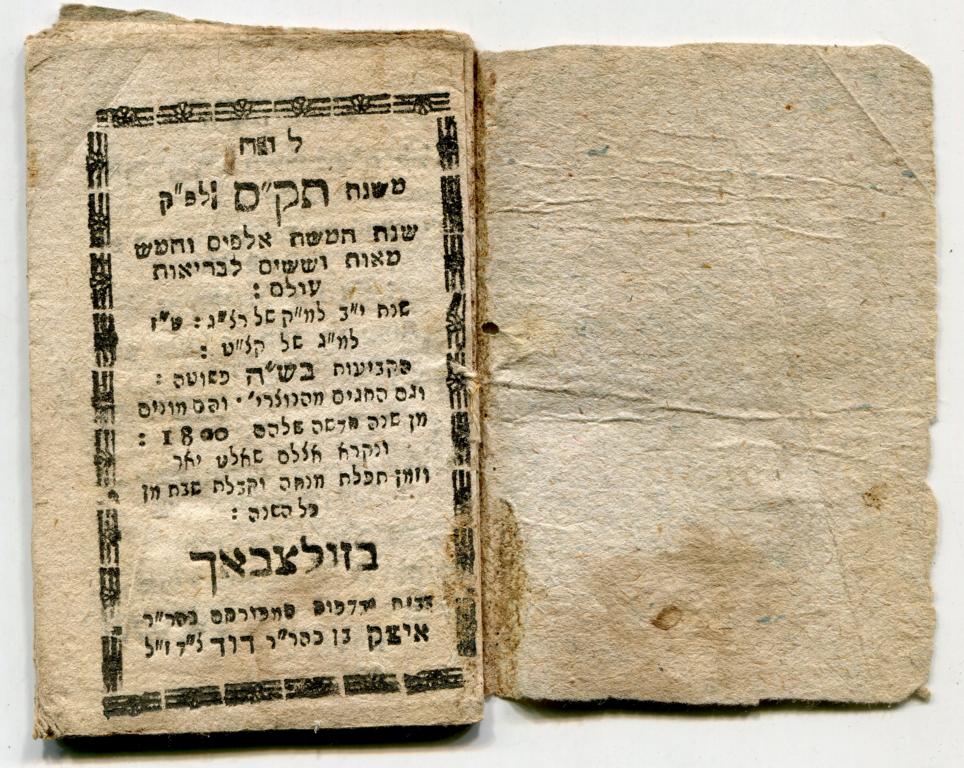 לוח
משנת תק״ס ולפ״ק
שנת חמשת אלפים וחמש
מאות וששים לבריאות
עולם :
שנת י״ב למ״ק של רצ״ג : ט״ז
למ״ג של קצ״ט :
הקביעות בש״ה פשוטה :
וגם החגים מהנוצרי׳ . והם מונים
מן שנה חדשה שלהם 1800 :
ונקרא אללס שאלט יאר
וזמן תפלת מנחה וקבלת שבת מן
כל השנה :
בזולצבאך
בבית ודפוס המפורסם כהר״ר
איצק בן כהר״ר דוד ז״ל